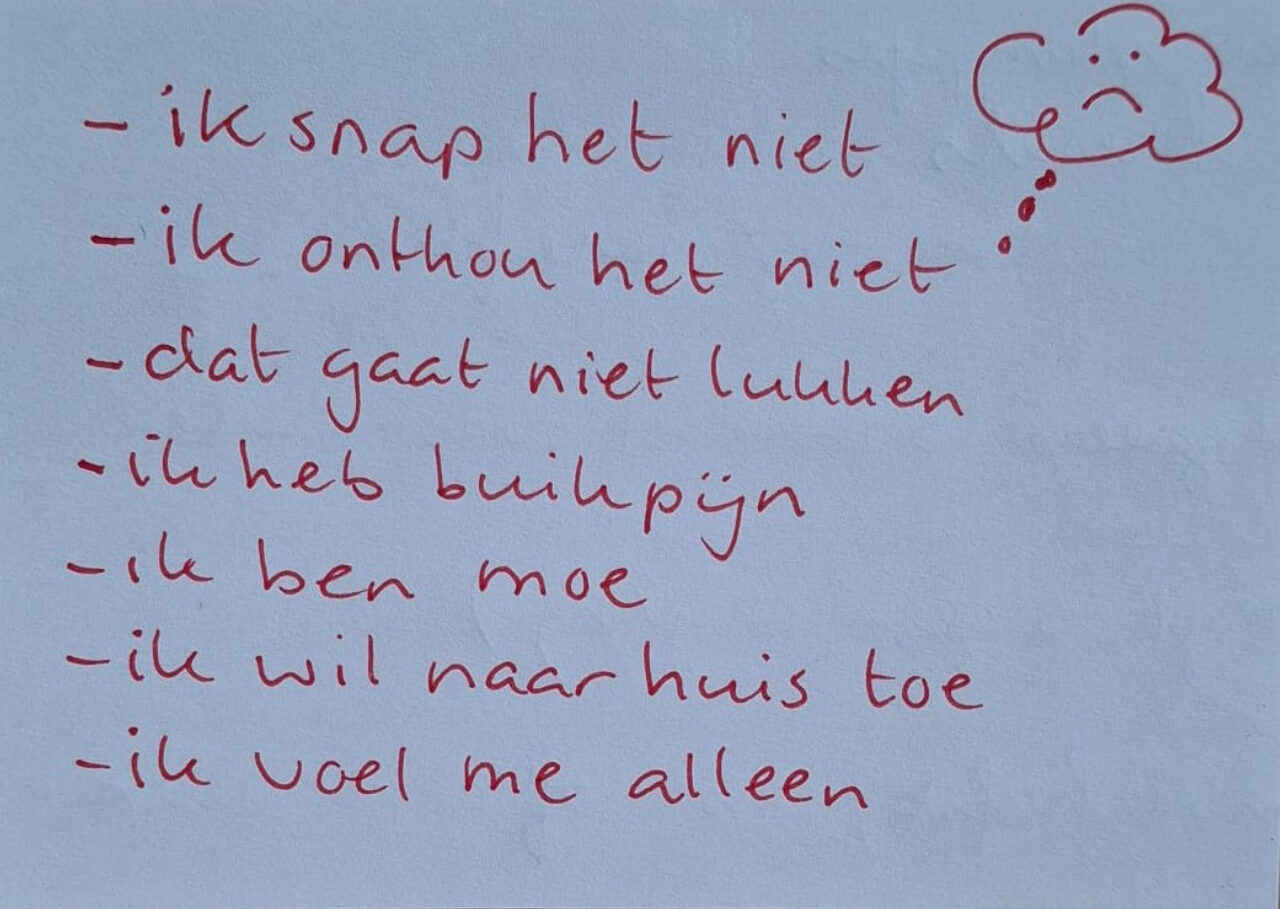 - ik snap het niet
- ik onthou het niet
- dat gaat niet lukken
- ik heb buikpijn
- ik ben moe
- ik wil naar huis toe
- ik voel me alleen